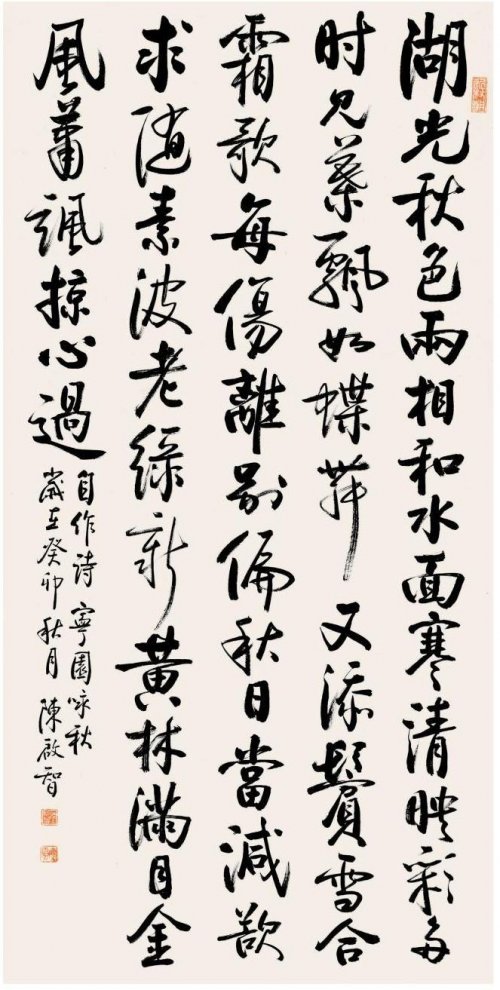 湖光秋色兩相和水面寒清映彩多
时见葉飄如蝶舞又添鬢雪合
霜歌每傷離别偏秋日當減欲
求随素波老綠新黄林滿目金
風蕭颯掠心過
自作诗寧園咏秋
歲在癸卯秋月陳啟智